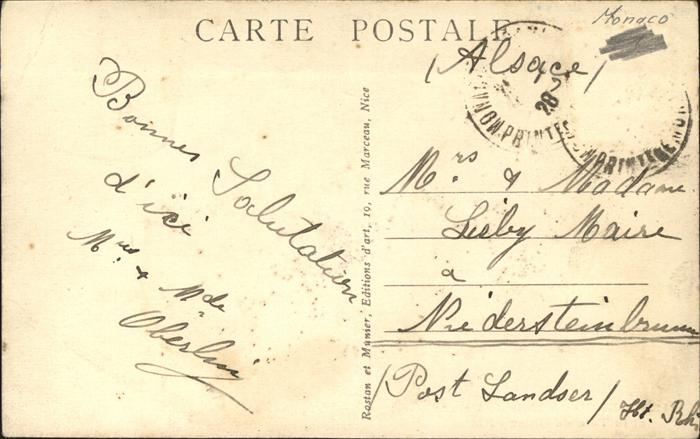 CARTE POSTALE
Monaco
/Alsace/
28
PRINTE
PRINTE
Bonnes
Salutation
d'ici
Mrs & Mde
Oberlin
Rostan et Munier, Editions d'art, 19, rue Marceau, Nice
Mrs & Madame
Lisby Maire
a
Niedersteinbrunn
/Post Landser/
Ht. Rh